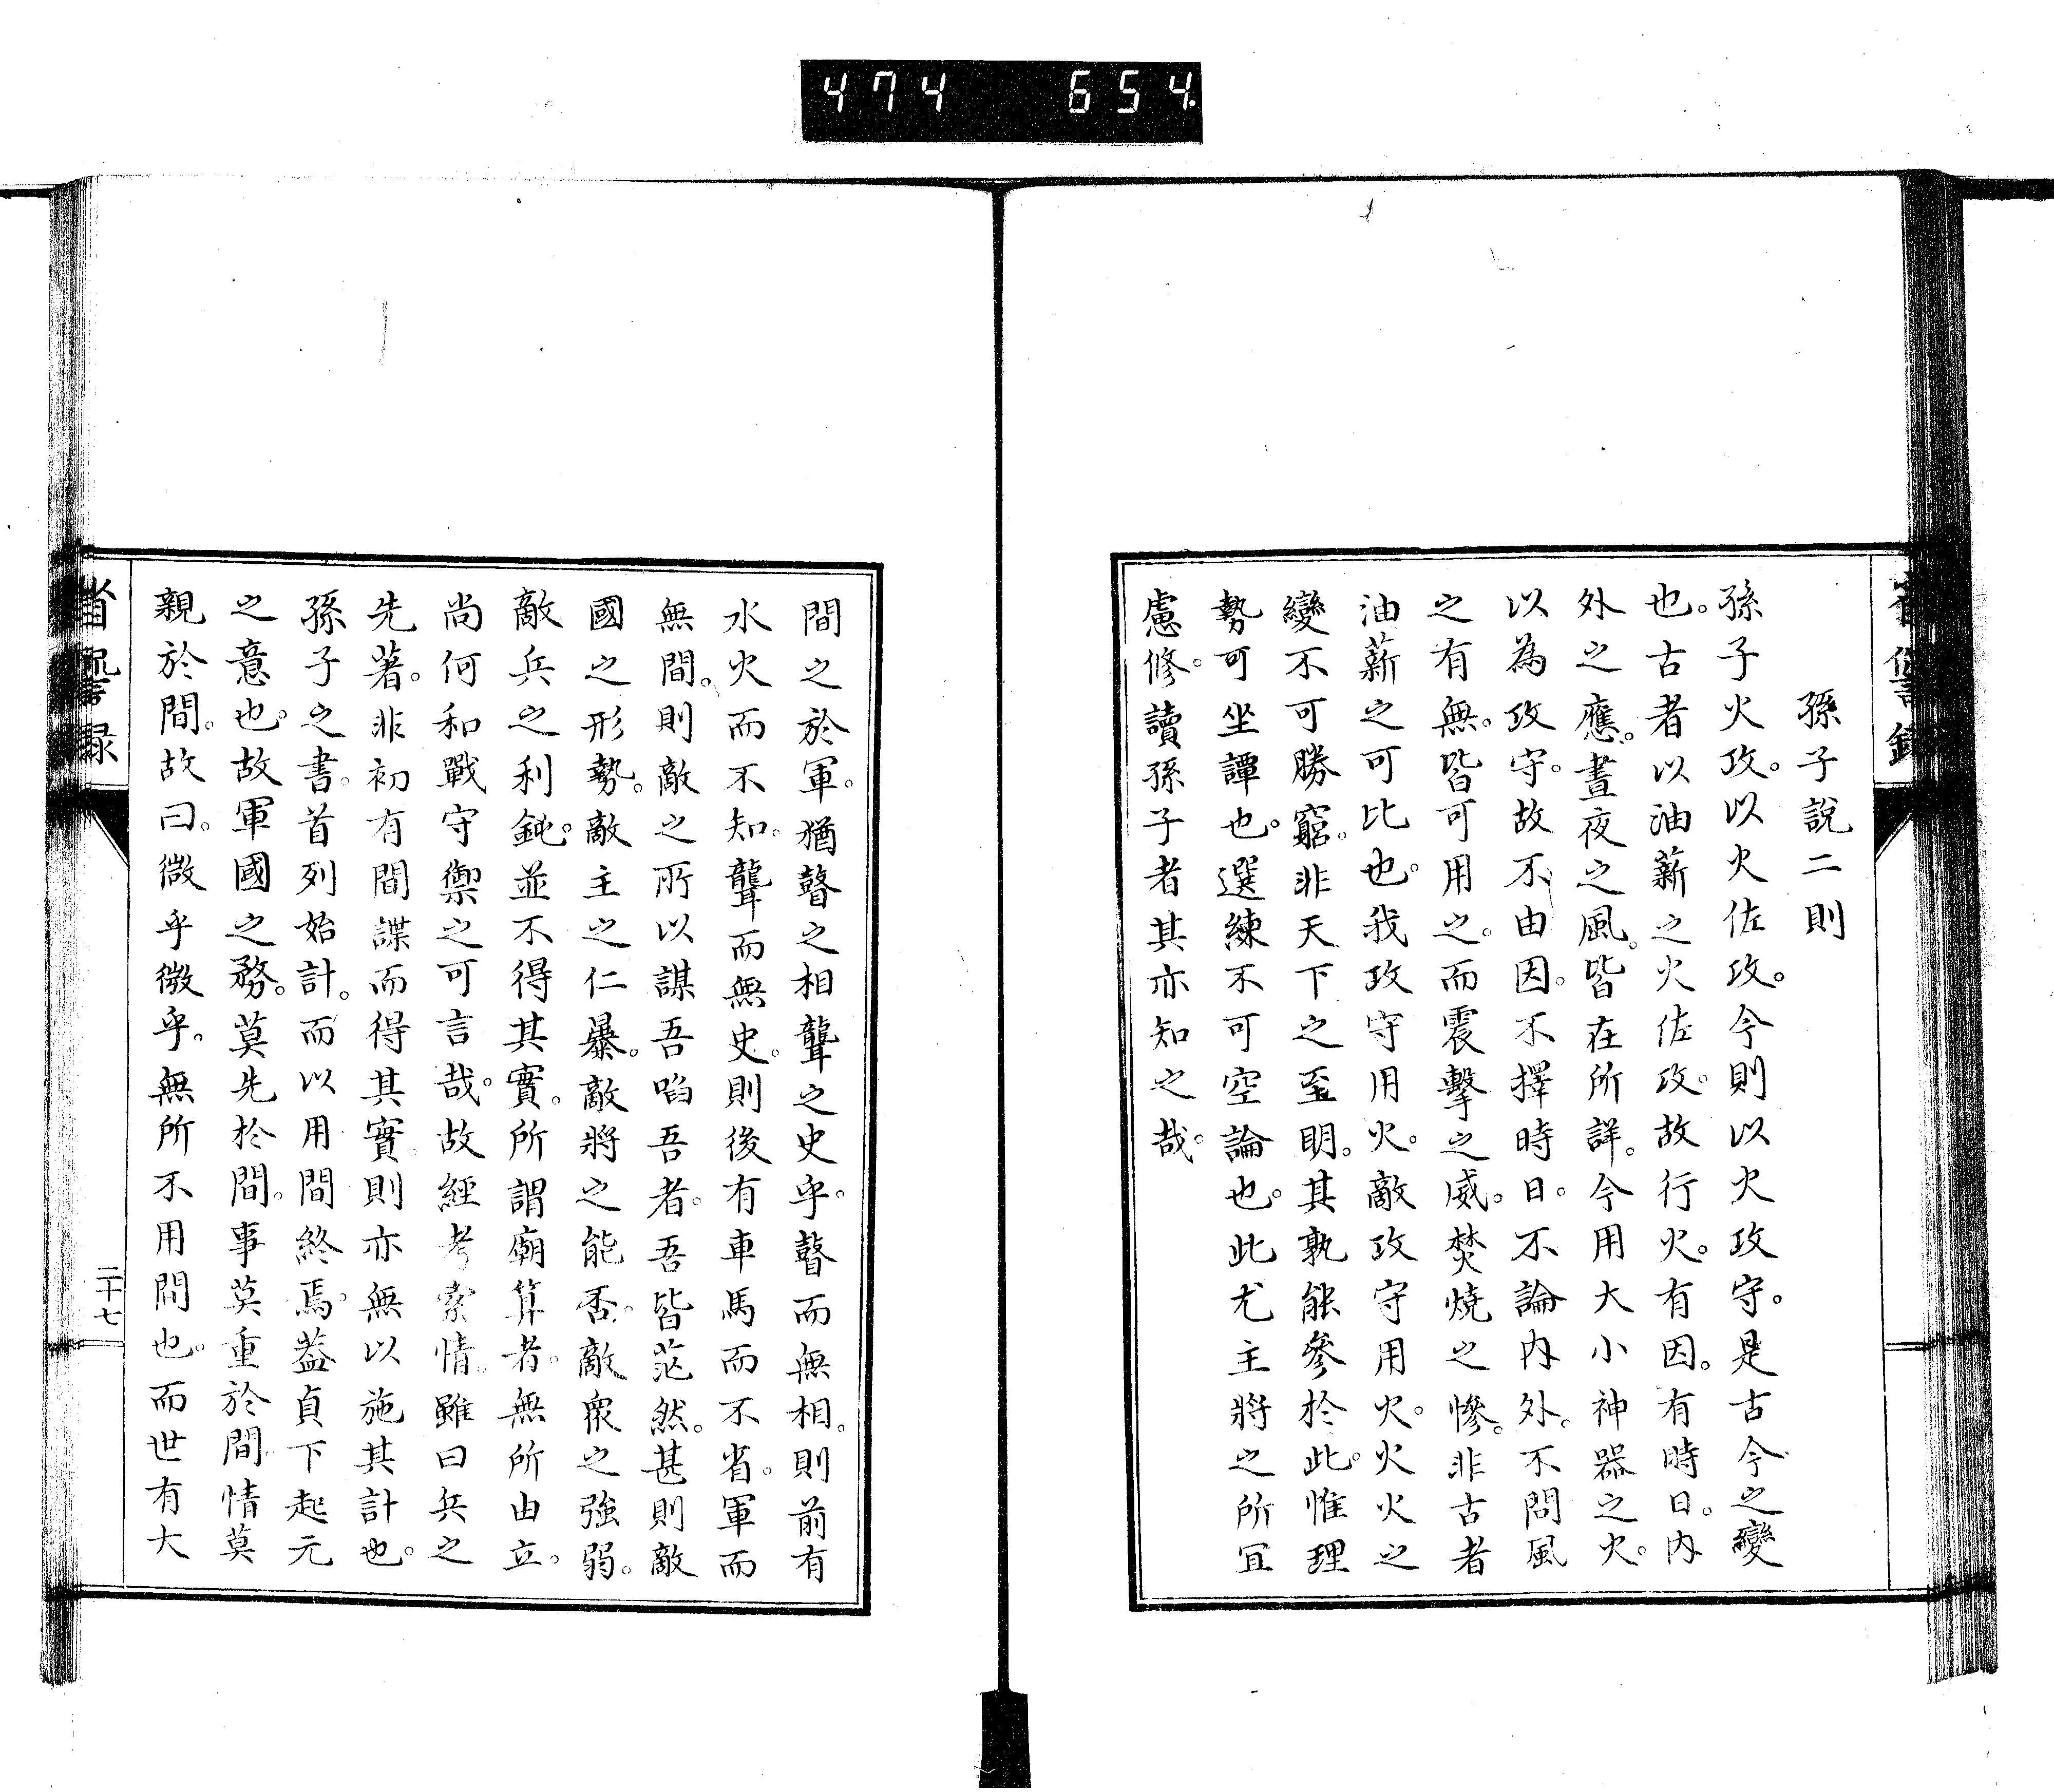 474 654
孫子說二則
孫子火攻。以火佐攻。今則以火攻守。是古今之變
也。古者以油薪之火佐攻。故行火。有因。有時日。内
外之應。晝夜之風。皆在所詳。今用大小神器之火。
以為攻守。故不由因。不擇時日。不論内外。不問風
之有無。皆可用之。而震擊之威。焚燒之慘。非古者
油薪之可比也。我攻守用火。敵攻守用火。火火之
變不可勝窮。非天下之至明。其孰能參於此。惟理
勢可坐譚也。選練不可空論也。此尤主將之所宜
慮修。讀孫子者其亦知之哉。
間之於軍。猶瞽之相聾之史乎。瞽而無相。則前有
水火而不知。聾而無史。則後有車馬而不省。軍而
無間。則敵之所以謀吾啗吾者。吾皆茫然。甚則敵
國之形勢。敵主之仁暴。敵將之能否。敵衆之強弱。
敵兵之利鈍。並不得其實。所謂廟算者。無所由立。
尚何和戰守禦之可言哉。故經考索情。雖曰兵之
先著。非初有間諜而得其實。則亦無以施其計也。
孫子之書。首列始計。而以用間終焉。蓋貞下起元
之意也。故軍國之務。莫先於間。事莫重於間。情莫
親於間。故曰。微乎微乎。無所不用間也。而世有大
省諐録
二十七